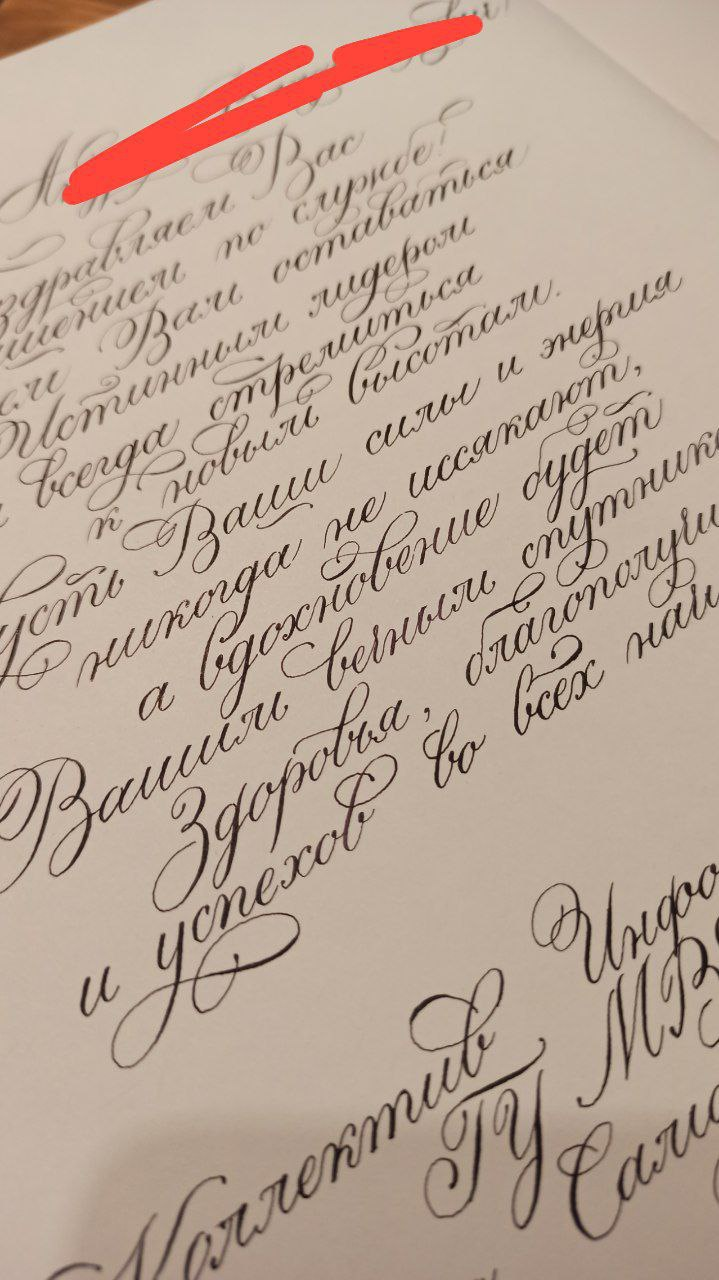 Вас
здравляем
шением по службе!
ем Вам оставаться
Истинным лидером
и всегда стремиться
к новым высотам.
усть Ваши силы и энергия
никогда не иссякают,
а вдохновение будет
Вашим вечным спутнико
Здоровья, благополучи
и успехов во всех начи
Коллектив Инфо
ГУ МВ
Сама